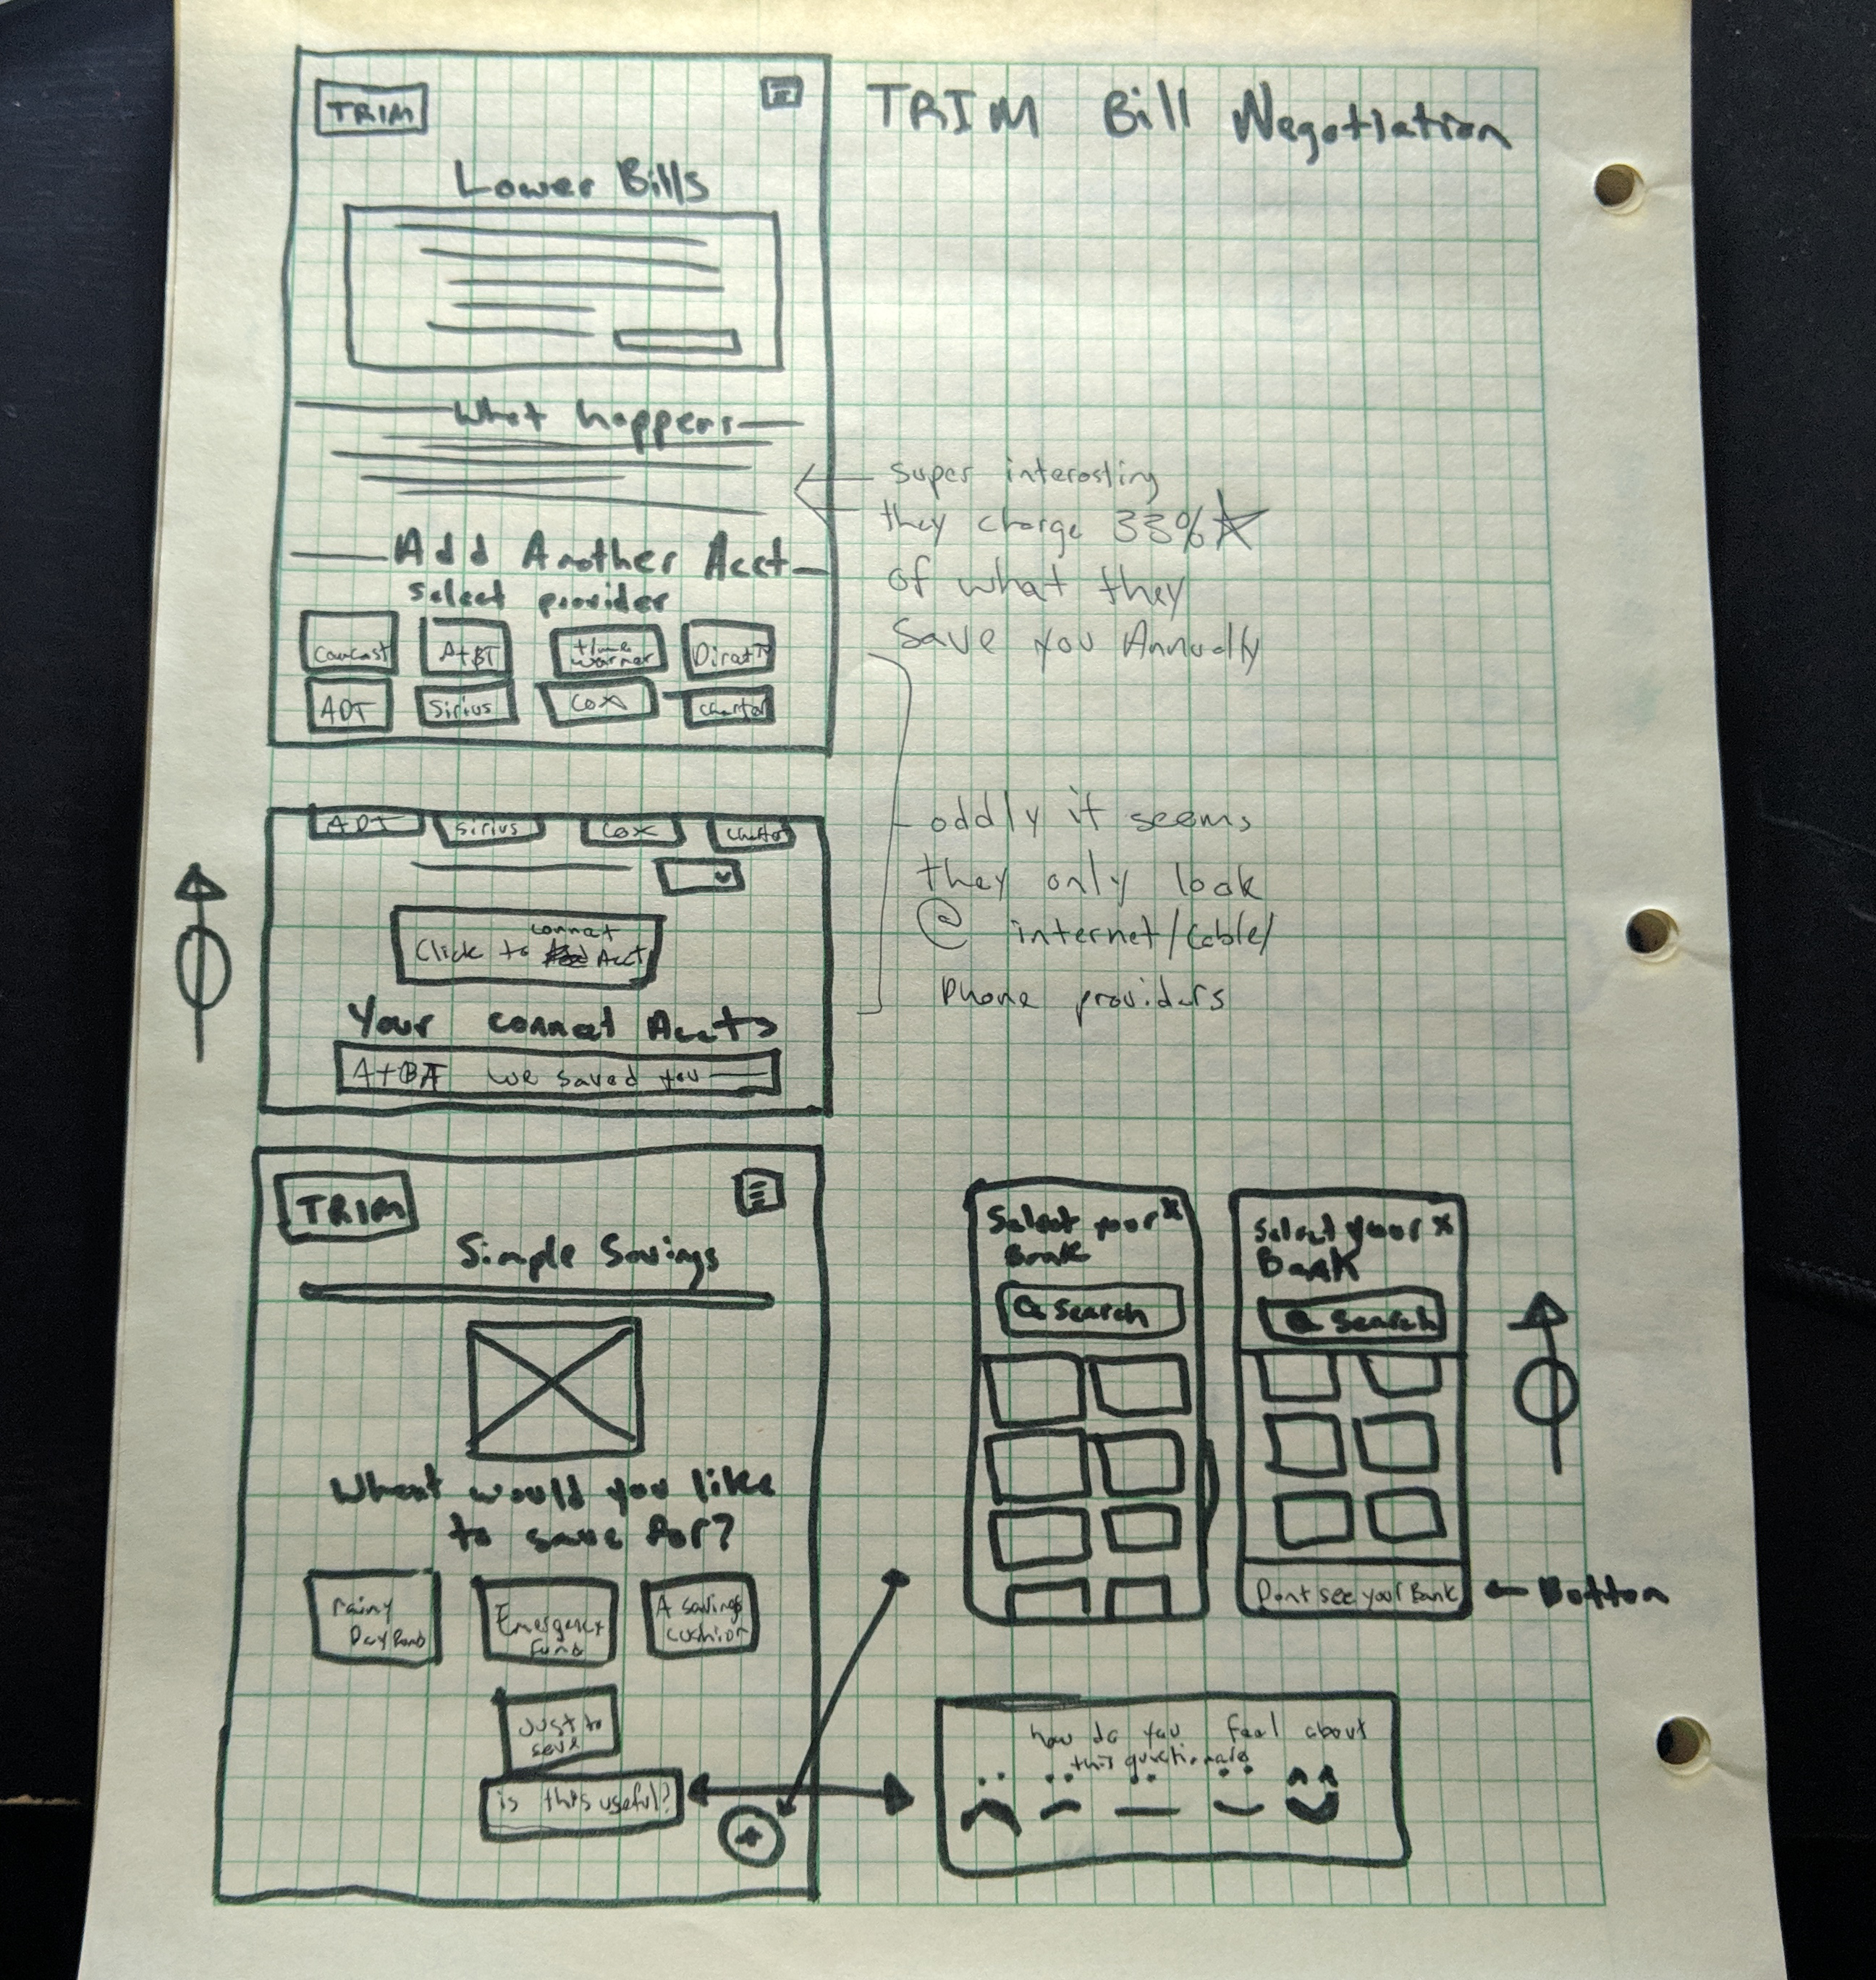 TRIM
TRIM Bill Negotiation
Lower Bills
What happens
super interesting
they charge 33%
of what they
save you Annually
Add Another Acct
select provider
Comcast
AT&T
time
warner
DirecTV
ADT
Sirius
Cox
charter
ADT
sirius
Cox
charter
oddly it seems
they only look
@ internet/cable/
phone providers
connect
Click to Acct
Your connect Accts
AT&T we saved you
TRIM
Simple Savings
What would you like
to save for?
rainy
Day
Emergency
Fund
A savings
cushion
Just to
save
is this useful?
Select your x
Bank
Search
Select your x
Bank
Search
Dont see your Bank
Bottom
how do you feel about
this